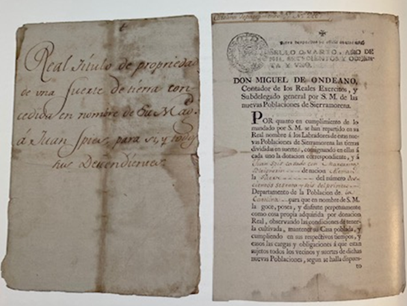 Real titulo de propriedad
de una suerte de tierra con
cedida en nombre de Su Mag.d
á Juan para si, y
sus Decendientes
SELLO QUARTO, AÑO DE
MIL SETECIENTOS Y OCHEN-
TA Y UNO.
DON MIGUEL DE ONDEANO,
Contador de los Reales Exercitos, y
Subdelegado general por S. M. de las
nuevas Poblaciones de Sierramorena.
POR quanto en cumplimiento de lo
mandado por S. M. se han repartido en su
Real nombre á los Labradores de estas nue-
vas Poblaciones de Sierramorena las tierras
divididas en suertes, entregando en ellas á
cada uno la dotacion correspondiente, y á
de nacion
la del numero
Departamento de la Poblacion de la
Carolina para que en nombre de S. M.
la goce, posea, y disfrute perpetuamente
como cosa propia adquirida por donacion
Real, observando las condiciones de tener-
la cultivada, mantener su Casa poblada, y
cumpliendo en sus respectivos tiempos, y
casos las cargas y obligaciones á que estan
sujetos todos los vecinos y suertes de dichas
nuevas Poblaciones, segun se halla dispues-
to